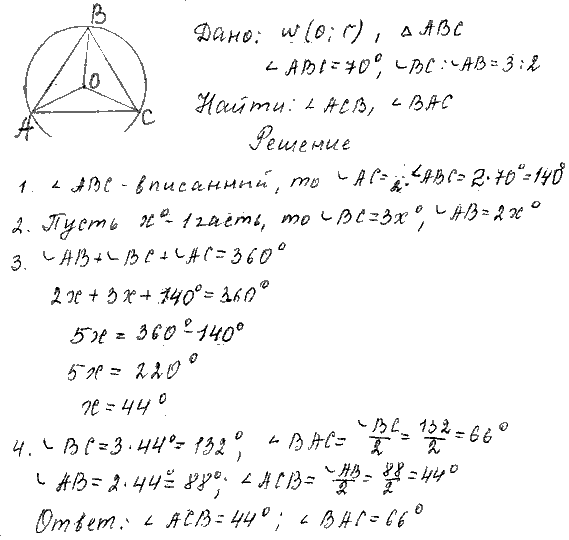 B
O
A
C
Дано: w(o; r), △ABC
∠ABC=70°, ◡BC:◡AB=3:2
Найти: ∠ACB, ∠BAC
Решение
1. ∠ABC - вписанный, то ◡AC= 2·∠ABC=2·70°=140°
2. Пусть x°- 1 часть, то ◡BC=3x°, ◡AB=2x°
3. ◡AB+◡BC+◡AC=360°
2x+3x+140°=360°
5x = 360°-140°
5x = 220°
x=44°
4. ◡BC=3·44°=132°, ∠BAC= ◡BC/2 = 132/2 = 66°
◡AB=2·44°=88°; ∠ACB= ◡AB/2 = 88/2 = 44°
Ответ: ∠ACB=44°; ∠BAC=66°